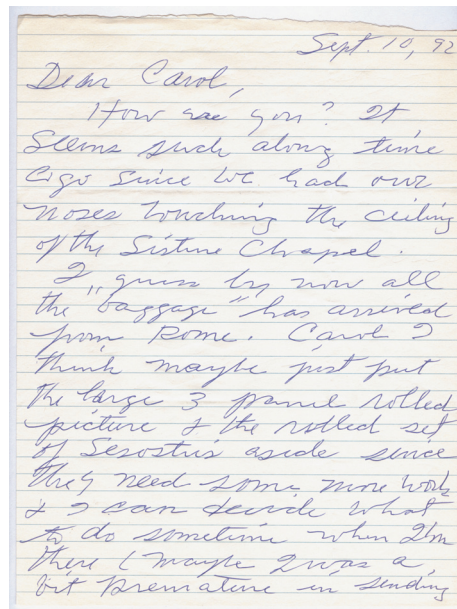 Sept. 10, 92
Dear Carol,
How are you? It
seems such along time
ago since we had our
noses touching the ceiling
of the Sistine Chapel.
I guess by now all
the "baggage" has arrived
from Rome. Carol I
think maybe just put
the large 3 panel rolled
picture & the rolled set
of Sesostris aside since
they need some more work
& I can decide what
to do sometime when I'm
there (maybe I was a
bit premature in sending